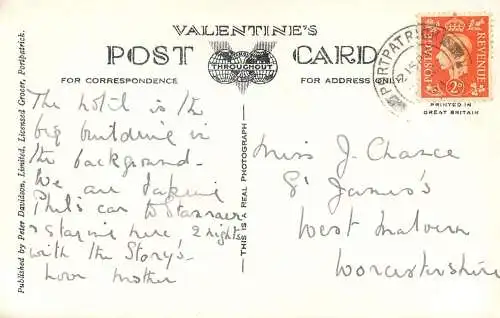 VALENTINE'S
POST CARD
THROUGHOUT
FOR CORRESPONDENCE
FOR ADDRESS ONLY
PORTPATRI
POSTAGE
REVENUE
2D
PRINTED IN
GREAT BRITAIN
Published by Peter Davidson, Limited, Licensed Grocer, Portpatrick.
THIS IS A REAL PHOTOGRAPH
The hotel is the
big building in
the background.
We are taking
Phil's car to Stanraer
& staying here 2 nights
with the Story's.
Love Mother
Miss J. Chance
St James's
West Malvern
Worcestershire